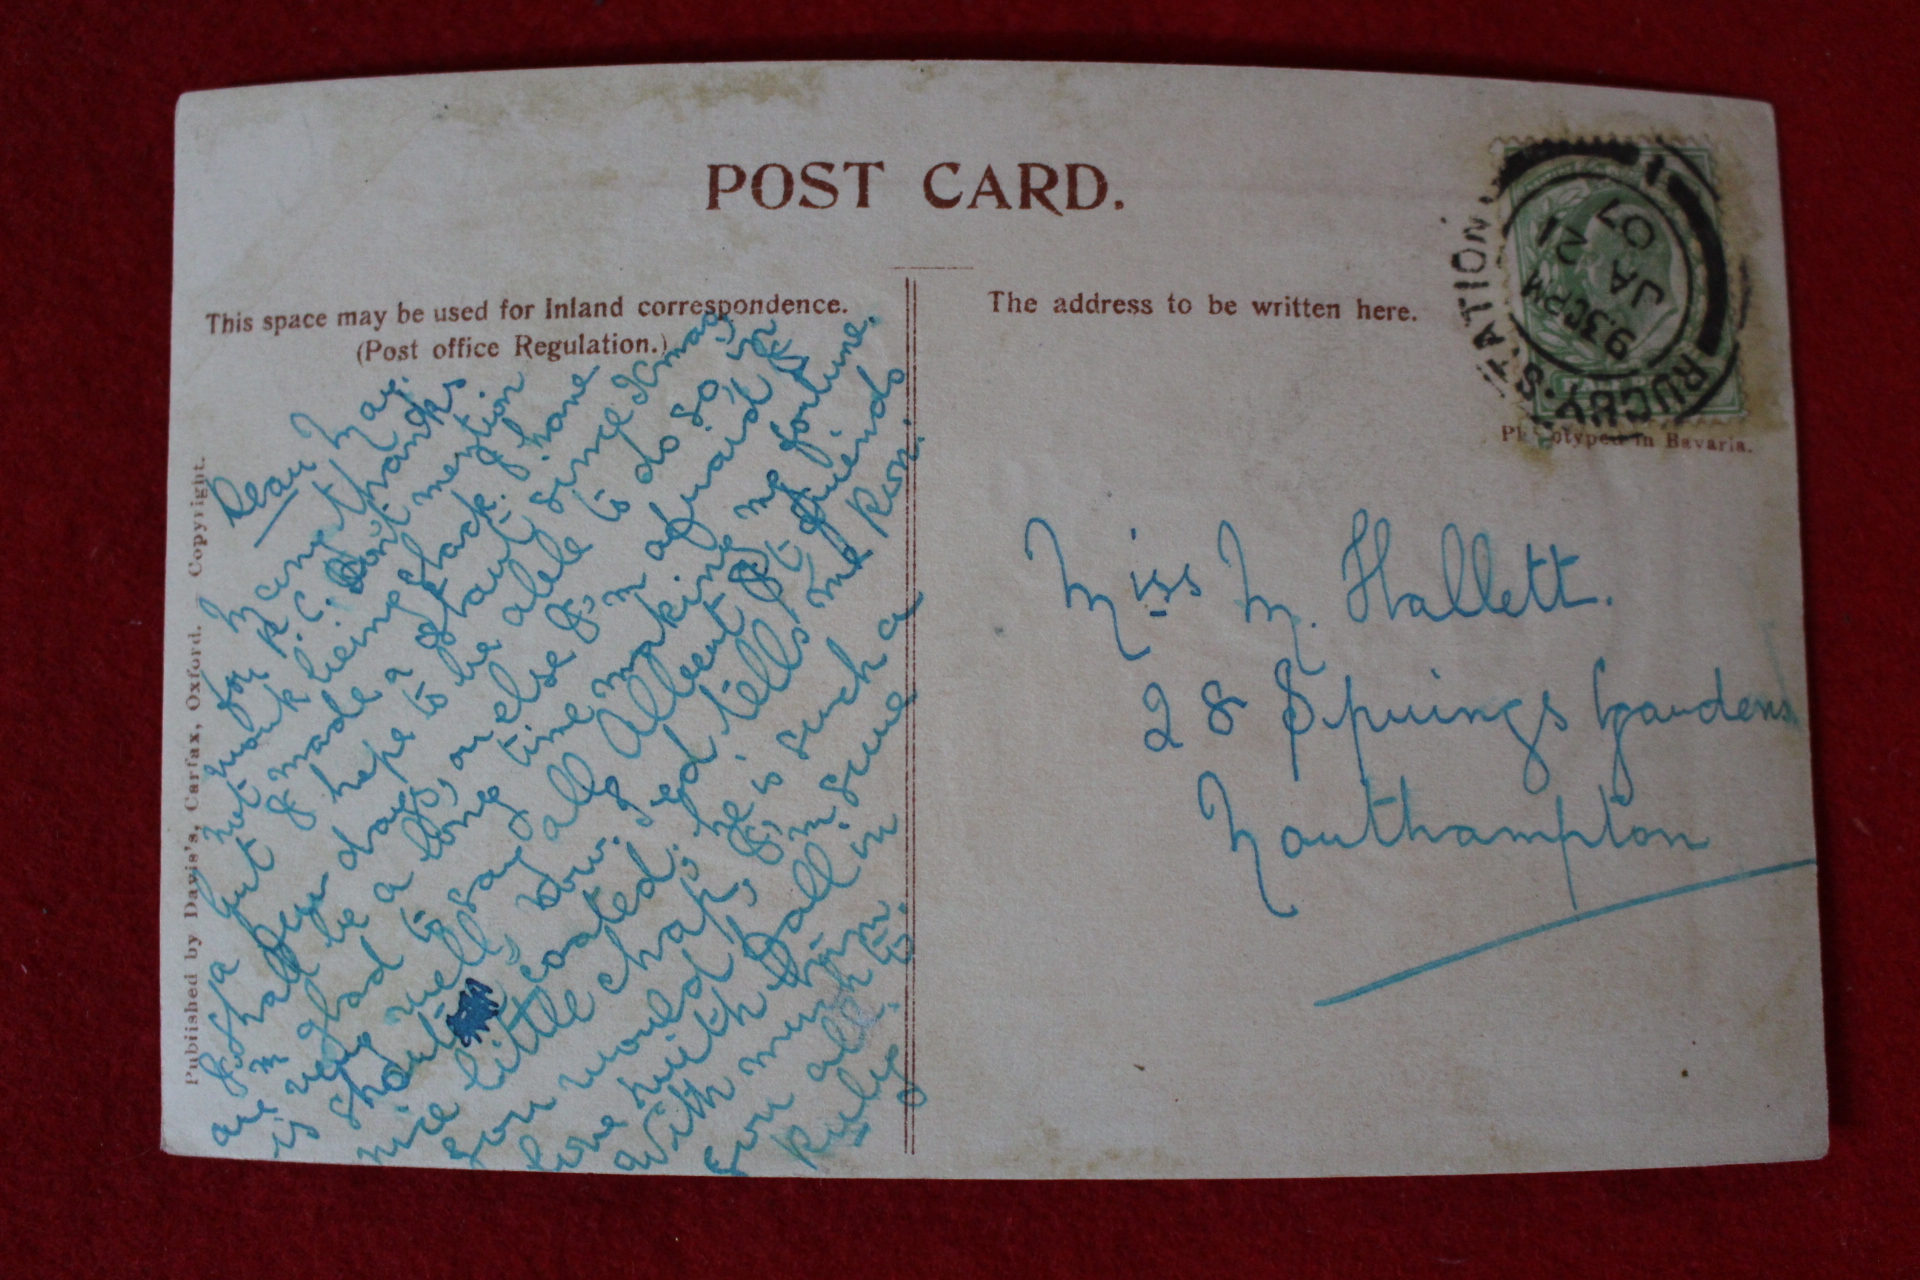 POST CARD.
This space may be used for Inland correspondence.
(Post office Regulation.)
The address to be written here.
RUGBY.STATION
1
9 30 PM
JA 21
07
Phototyped in Bavaria.
Published by Davis's, Carfax, Oxford. Copyright.
Dear May.
Many thanks
for P.C. Dont mention
not work being slack, I have
but I made a start since Xmas
I hope to be able to do so in
a few days, or else I'm afraid I
shall be a long time making my fortune.
are glad to say all
is very well, friends
short coated, tells me Ron.
nice little chap, he is such a
you would I'm sure
love with Doll in
With much
you all.
Ruby
Miss M. Hallett.
28 Springs Gardens
Northampton